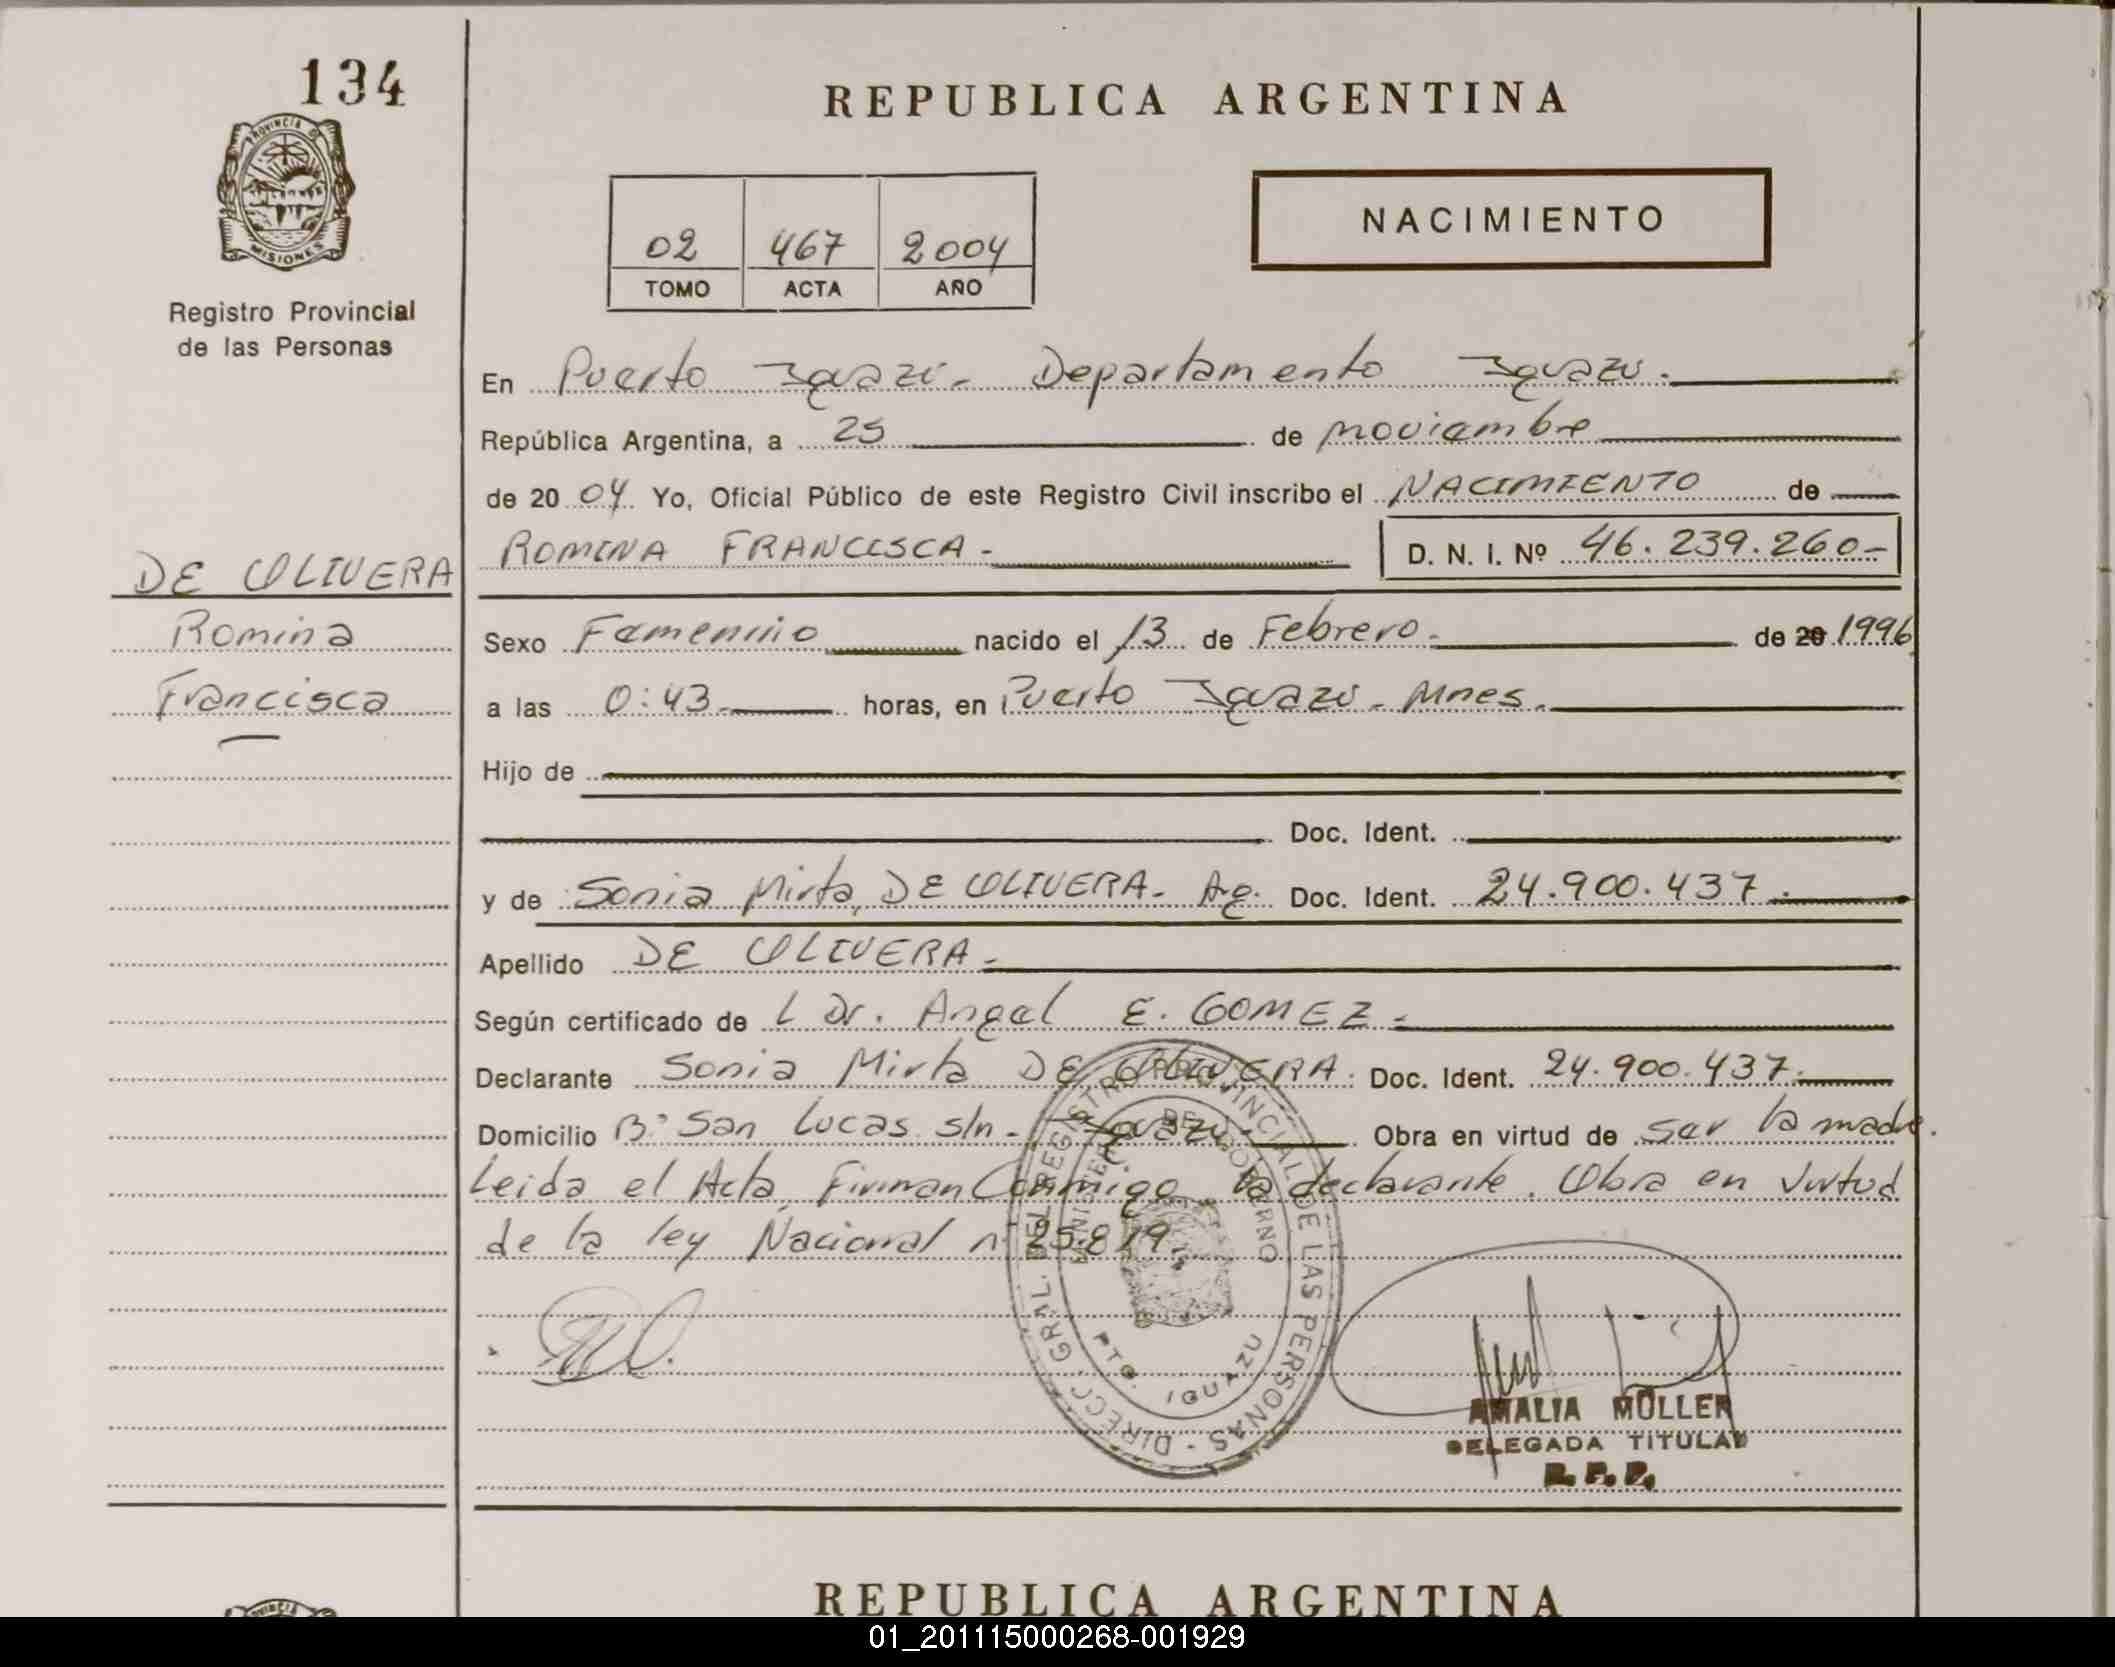 134
REPUBLICA ARGENTINA
PROVINCIA D
MISIONES
Registro Provincial
de las Personas
NACIMIENTO
02 467 2004
TOMO ACTA AÑO
En Puerto Iguazú - Departamento Iguazú.
República Argentina, a 25 de noviembre
de 20 04 Yo, Oficial Público de este Registro Civil inscribo el NACIMIENTO de
ROMINA FRANCISCA - D. N. I. Nº 46.239.260-
DE OLIVERA
Romina
Francisca
Sexo Femenino nacido el 13 de Febrero. de 20 1996
a las 0:43 horas, en Puerto Iguazú - Mnes.
Hijo de
Doc. Ident.
y de Sonia Mirta, DE OLIVERA - Ag. Doc. Ident. 24.900.437.
Apellido DE OLIVERA -
Según certificado de L Dr. Angel E. GOMEZ -
Declarante Sonia Mirta DE OLIVERA. Doc. Ident. 24.900.437.
Domicilio Bº San Lucas s/n - Iguazú - Obra en virtud de ser la madre.
Leida el Acta, Firman Conmigo la declarante. Obra en virtud
de la ley Nacional nº 25.819.
DIRECC. GRAL. DEL REGISTRO PROVINCIAL DE LAS PERSONAS -
MINISTERIO DE GOBIERNO
PTO. IGUAZU
AMALIA MÜLLER
DELEGADA TITULAR
R. P. P.
REPUBLICA ARGENTINA
01_201115000268-001929